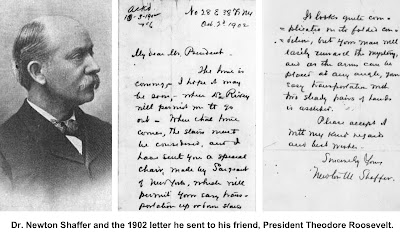 Ack'd
10-3-1902
No 28 E 38th St NY
Oct. 2d 1902
My dear Mr. President.
The time is
coming, I hope it may
be soon - when Dr Rixey
will permit you to go
out - When that time
comes, the stairs must
be considered, and I
have sent you a special
chair, made by Sargent
of New York, which will
permit your easy trans-
portation up or down stairs
It looks quite com-
plicated in its folded con-
dition, but your man will
easily unravel the mystery,
and as the arms can be
placed at any angle, your
easy transportation with
two steady pairs of hands
is assured.
Please accept it
with my kind regards
and best wishes.
Sincerely Yours
Newton M Shaffer.
Dr. Newton Shaffer and the 1902 letter he sent to his friend, President Theodore Roosevelt.